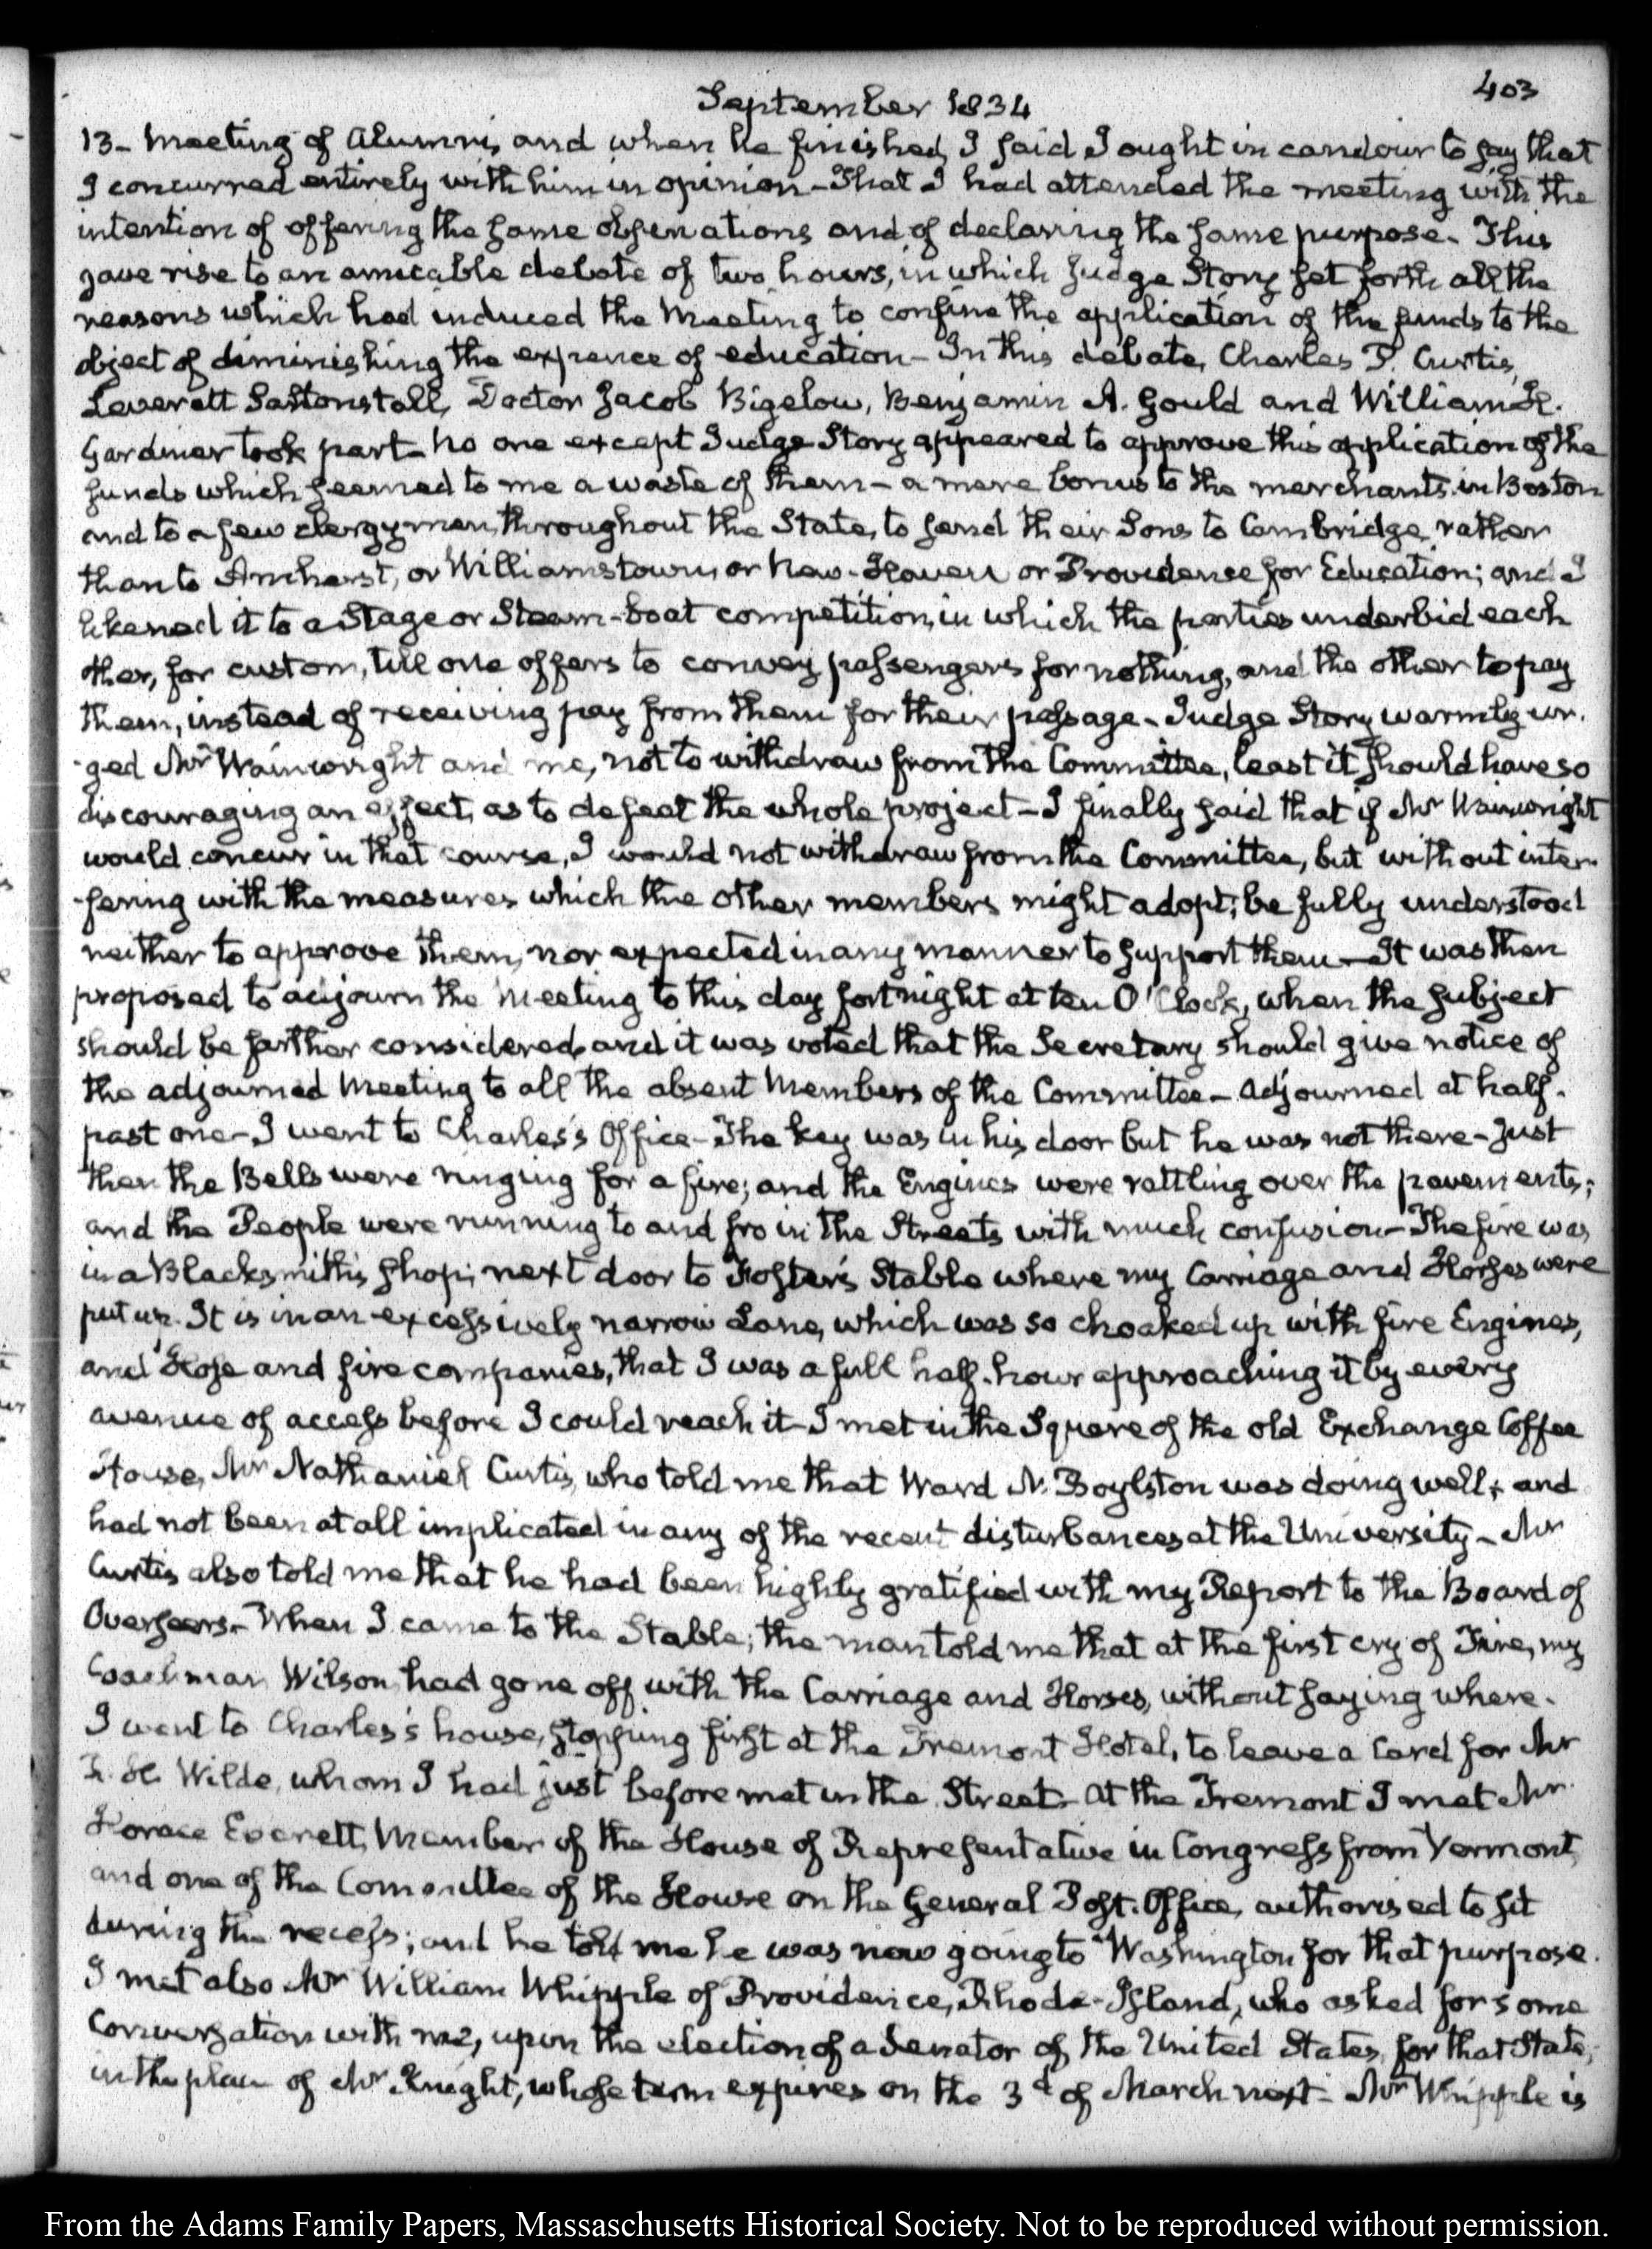 403
September 1834
13- Meeting of Alumni, and when he finished, I said I ought in candour to say that
I concurred entirely with him in opinion- That I had attended the meeting with the
intention of offering the same observations and of declaring the same purpose. This
gave rise to an amicable debate of two hours, in which Judge Story set forth all the
reasons which had induced the Meeting to confine the application of the funds to the
object of diminishing the expence of education- In this debate, Charles P. Curtis,
Leverett Saltonstall, Doctor Jacob Bigelow, Benjamin A. Gould and William H.
Gardiner took part- No one except Judge Story appeared to approve this application of the
funds which seemed to me a waste of them- a mere bonus to the merchants in Boston
and to a few clergymen, throughout the State, to send their Sons to Cambridge, rather
than to Amherst, or Williamstown, or New-Haven or Providence for Education; and I
likened it to a Stage or Steam-boat competition, in which the parties underbid each
ther, for custom, till one offers to convey passengers for nothing, and the other to pay
them, instead of receiving pay from them for their passage- Judge Story warmly ur-
-ged Mr Wainwright and me, not to withdraw from the Committee, least it should have so
discouraging an effect, as to defeat the whole project- I finally said that if Mr Wainwright
would concur in that course, I would not withdraw from the Committee, but without inter-
-fering with the measures which the other members might adopt; be fully understood
neither to approve them, nor expected in any manner to support them- It was then
proposed to adjourn the Meeting to this day fortnight at ten O'Clock, when the subject
should be farther considered, and it was voted that the Secretary should give notice of
the adjourned Meeting to all the absent Members of the Committee- Adjourned at half-
past one- I went to Charles's Office- The key was in his door but he was not there- Just
then the Bells were ringing for a fire; and the Engines were rattling over the pavements;
and the People were running to and fro in the Streets with much confusion- The fire was
in a Blacksmith's shop; next door to Foster's Stable where my Carriage and Horses were
put up. It is in an excessively narrow Lane, which was so choaked up with fire Engines,
and Hose and fire companies, that I was a full half-hour approaching it by every
avenue of access before I could reach it- I met in the Square of the old Exchange Coffee
House, Mr Nathaniel Curtis, who told me that Ward N. Boylston was doing well, and
had not been at all implicated in any of the recent disturbances at the University- Mr
Curtis also told me that he had been highly gratified with my Report to the Board of
Overseers- When I came to the Stable; the man told me that at the first cry of Fire, my
Coachman Wilson had gone off with the Carriage and Horses, without saying where.
I went to Charles's house, stopping first at the Tremont Hotel, to leave a Card for Mr
R. H. Wilde, whom I had just before met in the Street- At the Tremont I met Mr
Horace Everett, Member of the House of Representative in Congress from Vermont,
and one of the Committee of the House on the General Post-Office, authorised to sit
during the recess; and he told me he was now going to Washington for that purpose.
I met also Mr William Whipple of Providence, Rhode-Island, who asked for some
Conversation with me, upon the election of a Senator of the United States, for that State,
in the place of Mr Knight, whose term expires on the 3d of March next- Mr Whipple is
From the Adams Family Papers, Massaschusetts Historical Society. Not to be reproduced without permission.